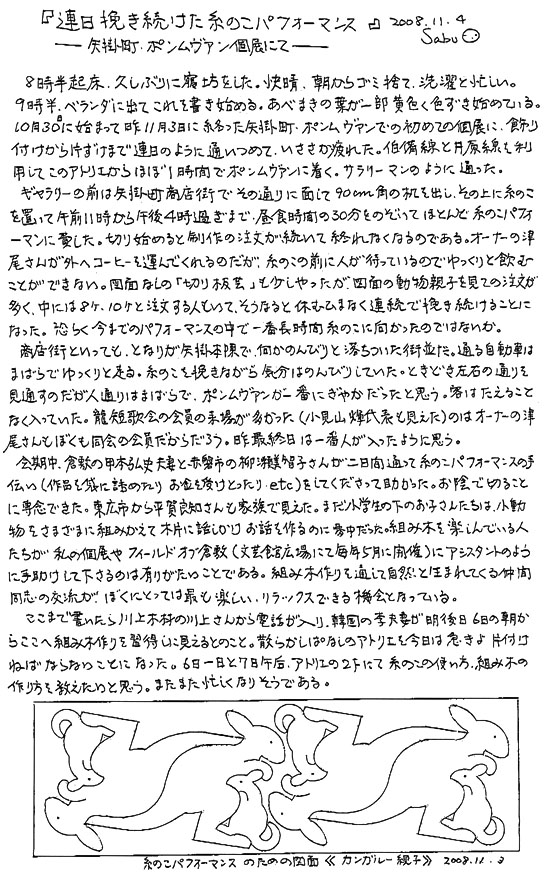 『連日挽き続けた糸のこパフォーマンス』 2008.11.4
―矢掛町・ポンムヴァン個展にて― Sabu
8時半起床、久しぶりに寝坊をした。快晴、朝からゴミ捨て、洗濯と忙しい。
9時半、ベランダに出てこれを書き始める。あべまきの葉が一部黄色く色ずき始めている。
10月30日に始まって昨11月3日に終った矢掛町・ポンムヴァンでの初めての個展に、飾り
付けから片ずけまで連日のように通いつめて、いささか疲れた。伯備線と井原線を利
用してこのアトリエからほぼ1時間でポンムヴァンに着く。サラリーマンのように通った。
ギャラリーの前は矢掛町商店街でその通りに面して90cm角の机を出し、その上に糸のこ
を置いて午前11時から午後4時過ぎまで、昼食時間の30分をのぞいてほとんど糸のこパフォ
ーマンに費した。切り始めると制作の注文が続いて終れなくなるのである。オーナーの津
尾さんが外へコーヒーを運んでくれるのだが、糸のこの前に人が待っているのでゆっくりと飲む
ことができない。図面なしの「切り板芸」も少しやったが、図面の動物親子を見ての注文が
多く、中には8ケ、10ケと注文する人もいて、そうなると休むひまなく連続で挽き続けることに
なった。恐らく今までのパフォーマンスの中で一番長時間糸のこに向かったのではないか。
商店街といっても、となりが矢掛本陣で、何かのんびりと落ちついた街並だ。通る自動車は
まばらでゆっくりと走る。糸のこを挽きながら気分はのんびりしていた。ときどき左右の通りを
見通すのだが人通りはまばらで、ポンムヴァンが一番にぎやかだったと思う。客はたえること
なく入っていた。龍短歌会の会員の来場が多かった(小見山輝代表も見えた)のはオーナーの津
尾さんもぼくも同会の会員だからだろう。昨最終日は一番人が入ったように思う。
会期中、倉敷の甲本弘史夫妻と赤磐市の柳瀬美智子さんが二日間通って糸のこパフォーマンスの手
伝い(作品を袋に詰めたり お金を受けとったり・etc)をしてくださって助かった。お陰で切ること
に専念できた。東広市から平賀良知さんも家族で見えた。まだ小学生の下のお子さんたちは、小動
物をさまざまに組みかえて木片に話しかけ お話を作るのに夢中だった。組み木を楽しんでいる人
たちが 私の個展や フィールドオブ倉敷(文芸館広場にて毎年5月に開催)にアシスタントのよう
に手助けして下さるのは有りがたいことである。組み木作りを通じて自然と生まれてくる仲間
同志の交流が、ぼくにとっては最も楽しい、リラックスできる機会となっている。
ここまで書いたら川上木材の川上さんから電話が入り、韓国の李夫妻が明後日6日の朝か
らここへ組み木作りを習得しに見えるとのこと。散らかしぱなしのアトリエを今日は急きょ片付け
ねばならないことになった。6日一日と7日午后、アトリエの2Fにて糸のこの使い方、組み木の
作り方を教えたいと思う。またまた忙しくなりそうである。
糸のこパフォーマンスのための図面《カンガルー親子》 2008.11.3